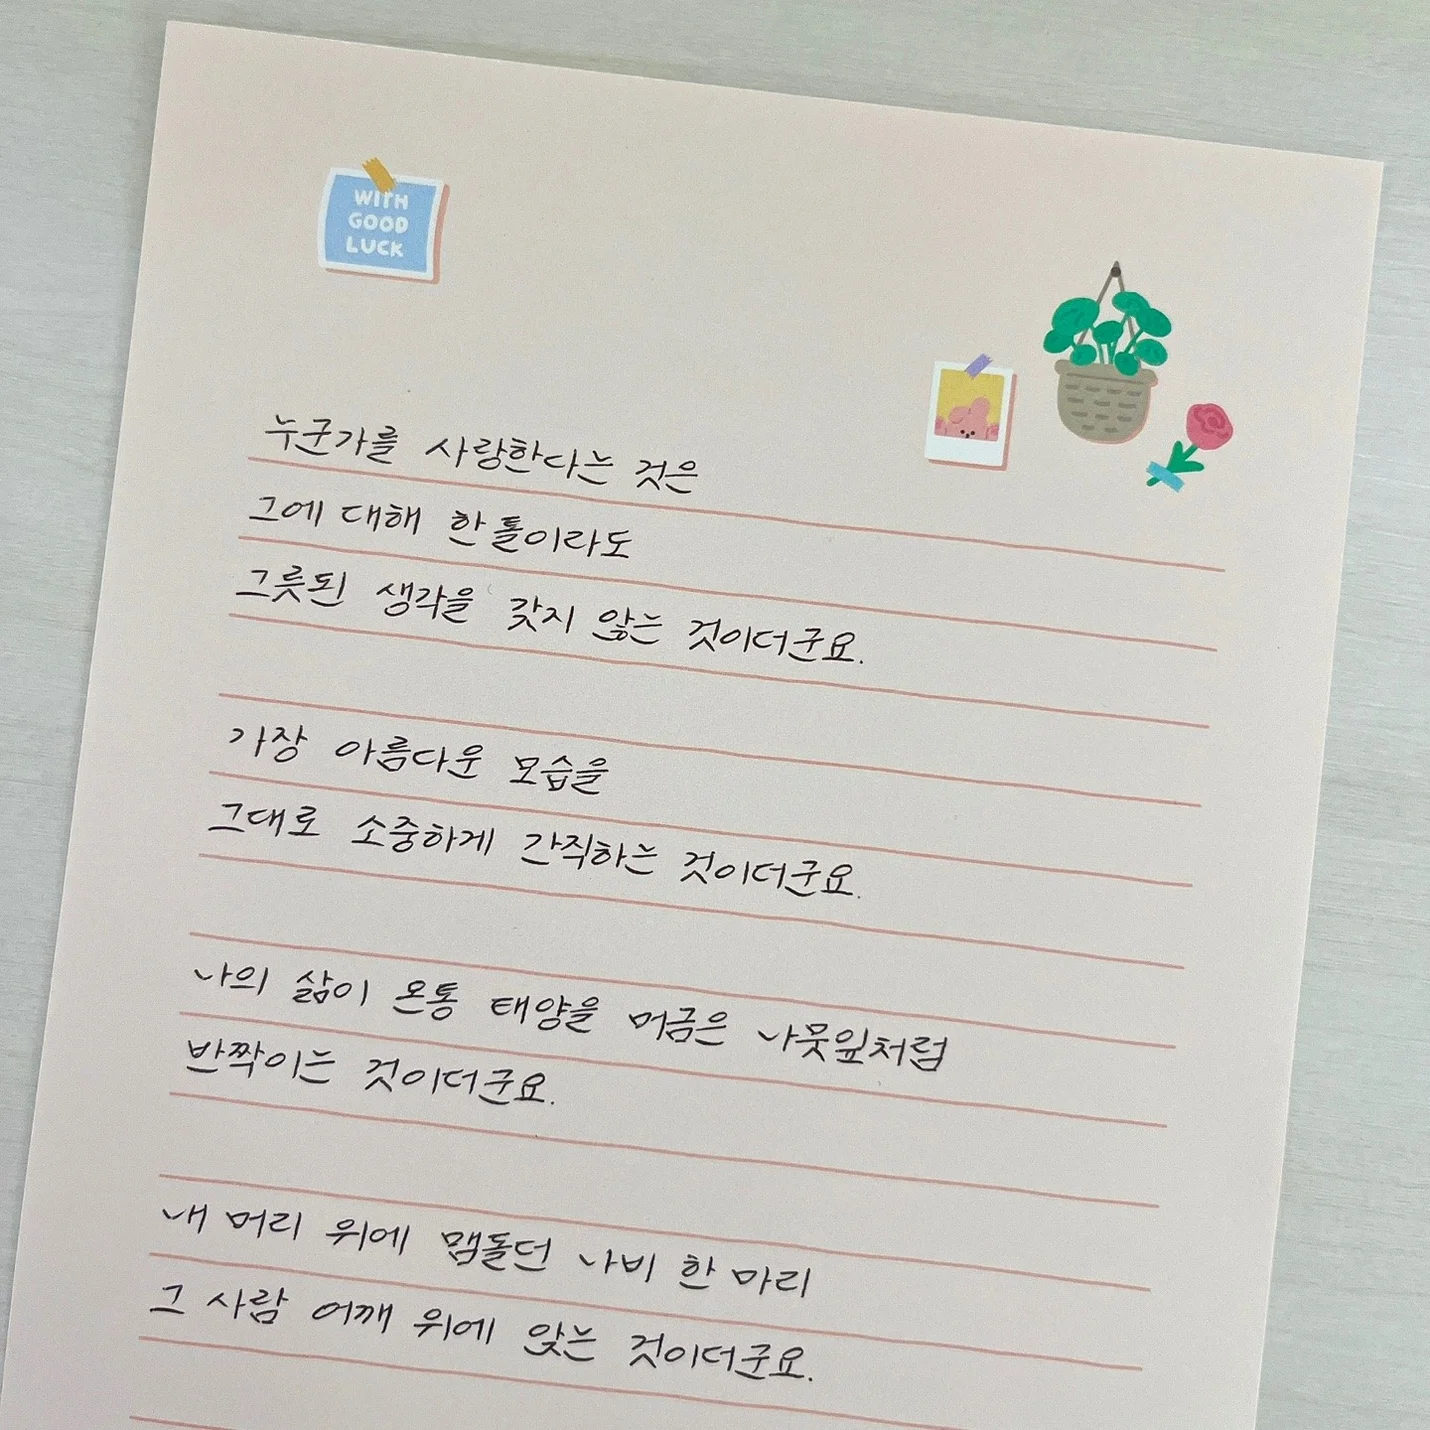 WITH
GOOD
LUCK
누군가를 사랑한다는 것은
그에 대해 한 톨이라도
그릇된 생각을 갖지 않는 것이더군요.
가장 아름다운 모습을
그대로 소중하게 간직하는 것이더군요.
나의 삶이 온통 태양을 머금은 나뭇잎처럼
반짝이는 것이더군요.
내 머리 위에 맴돌던 나비 한 마리
그 사람 어깨 위에 앉는 것이더군요.